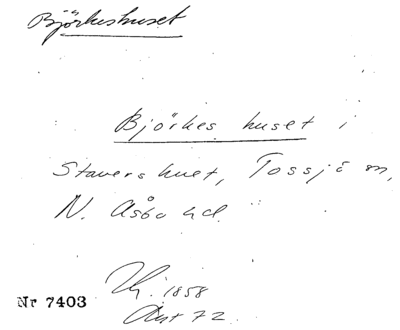 Björkeshuset
Björkes huset i
Stavershuet, Tossjö sn,
N. Åsbo hd.
1858
Nr 7403
72